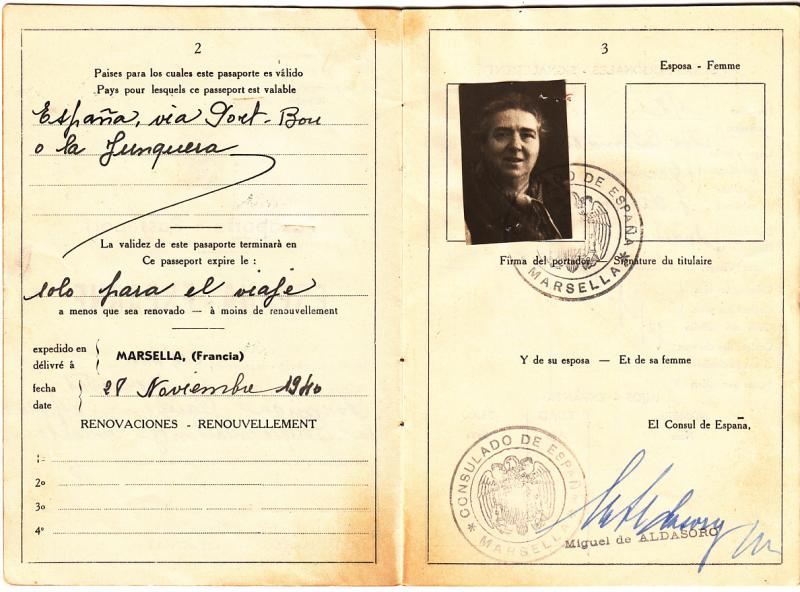 2
Paises para los cuales este pasaporte es válido
Pays pour lesquels ce passeport est valable
España, via Port-Bou
o la Junquera
La validez de este pasaporte terminará en
Ce passeport expire le :
solo para el viaje
a menos que sea renovado — à moins de renouvellement
expedido en
délivré à
MARSELLA, (Francia)
fecha
date
28 Noviembre 1940
RENOVACIONES - RENOUVELLEMENT
1º
2º
3º
4º
3
Esposa - Femme
CONSULADO DE ESPAÑA
* MARSELLA *
Firma del portador — Signature du titulaire
Y de su esposa — Et de sa femme
El Consul de España,
* CONSULADO DE ESPAÑA
MARSELLA
Miguel de ALDASORO